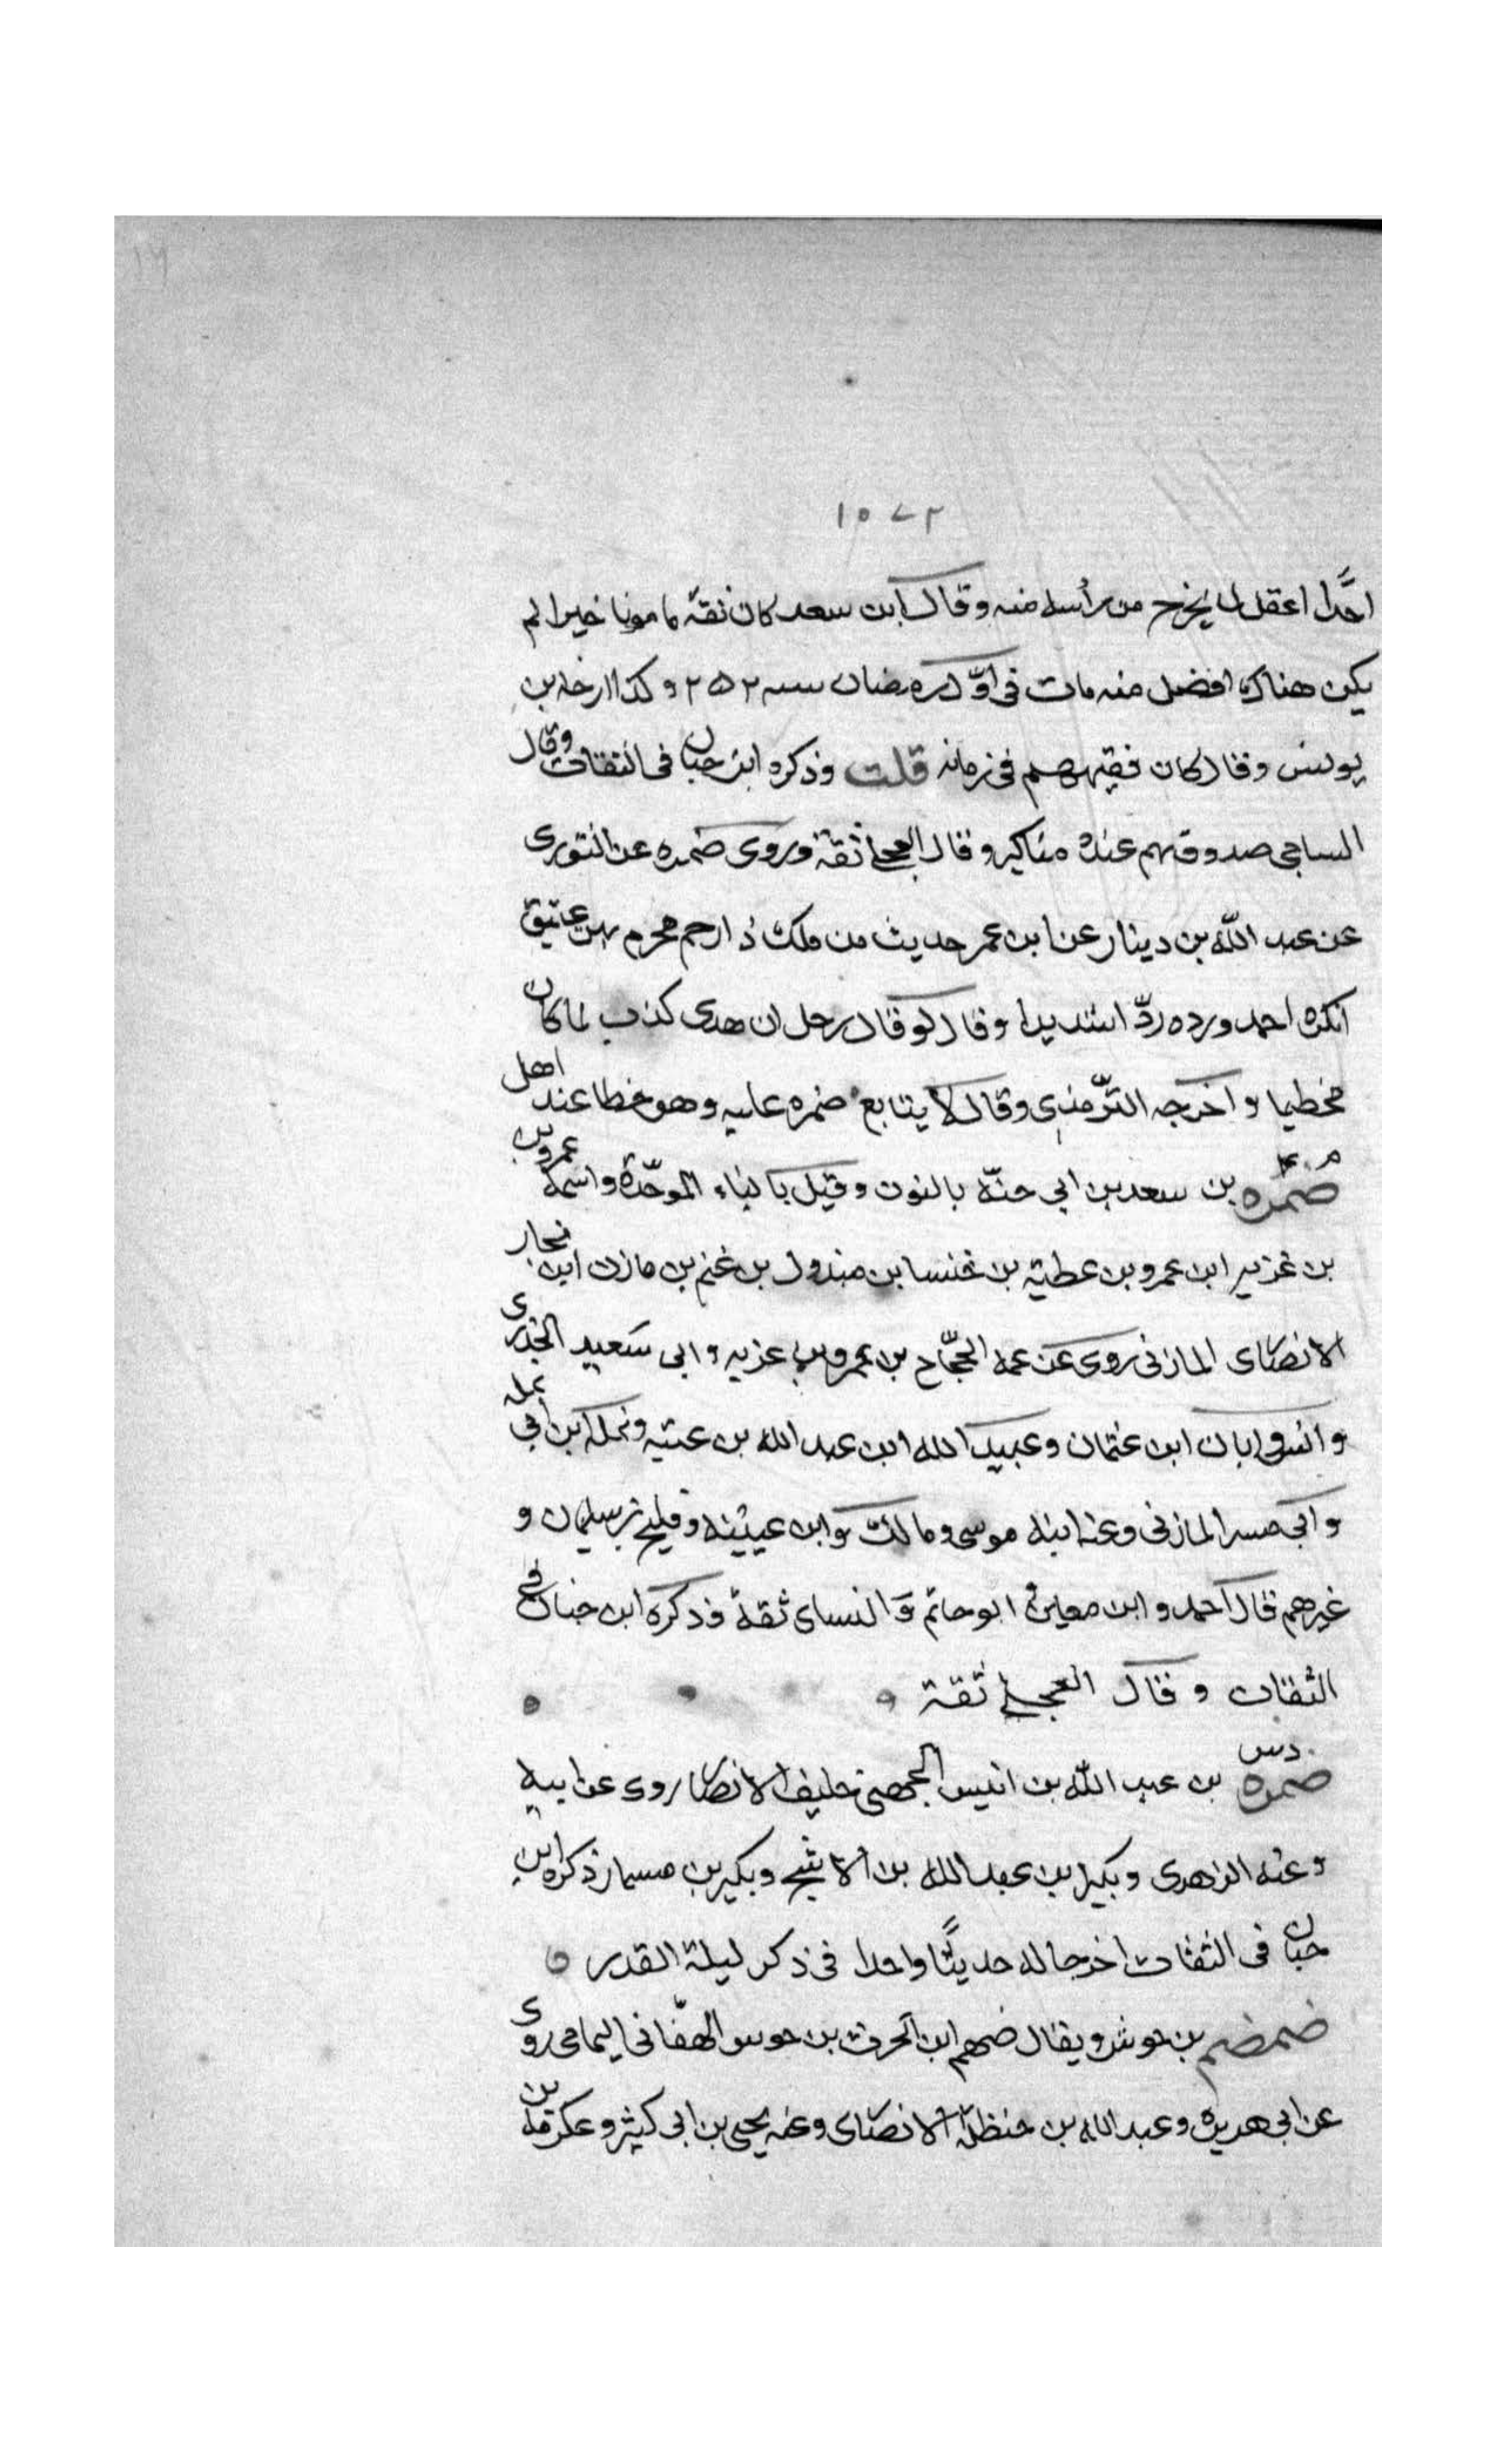 ١٥٧٢
احدًا اعقل لما يخرج من رأسه منه وقال ابن سعد كان ثقة مامونا خيرا لم
يكن هناك افضل منه مات في اوّل رمضان سنه ٢٥٢ وكذا ارخه بن
يونس وقال كان فقيههم في زمانه قلت وذكره ابن حبان في الثقات وقال
الساجي صدوق يهم عنده مناكير وقال العجلي ثقة وروى ضمره عن الثورى
عن عبد الله بن دينار عن ابن عمر حديث من ملك ذا رحم محرم فهو عتيق
انكره احمد ورده ردّا شديدا وقال لو قال رجل ان هدى كذب لما كان
مخطيا واخرجه الترّمذي وقال لا يتابع ضمره عليه وهو خطا عند اهل
ضمره بن سعد بن ابي حنّة بالنون وقيل بالباء الموحّدة واسمه عمرو بن
بن غزيه ابن عمرو بن عطية بن خنسا بن مبذول بن غنم بن مازن ابن نجار
الانصاى المازنى روى عن عمه الحجّاج بن عمرو بن عزيه وابى سعيد الخدرى
وانس وابان ابن عثمان وعبيد الله ابن عبد الله بن عتبه ونمله بن ابي نمله
وابى مسر المازنى وعنه ابنه موسى ومالك وابن عيينه وفليح بن سليمان و
غيرهم قال احمد وابن معين وابو حاتم والنساى ثقة وذكره ابن حبان في
الثقات وقال العجلي ثقة
دس
ضمره بن عبد الله بن انيس الجهنى حليف الانصا روى عن ابيه
وعنه الزهرى وبكير بن عبد الله بن الاشج وبكير بن مسمار ذكره ابن
حبان فى الثقات اخرجا له حديثًا واحدا فى ذكر ليلة القدر
ضمضم بن جوش ويقال ضمضم ابن الحرث بن جوس الهفّانى اليمامى روى
عن ابى هريره وعبد الله بن حنظلة الانصاى وعنه يحيى بن ابى كثير وعكرمه بن